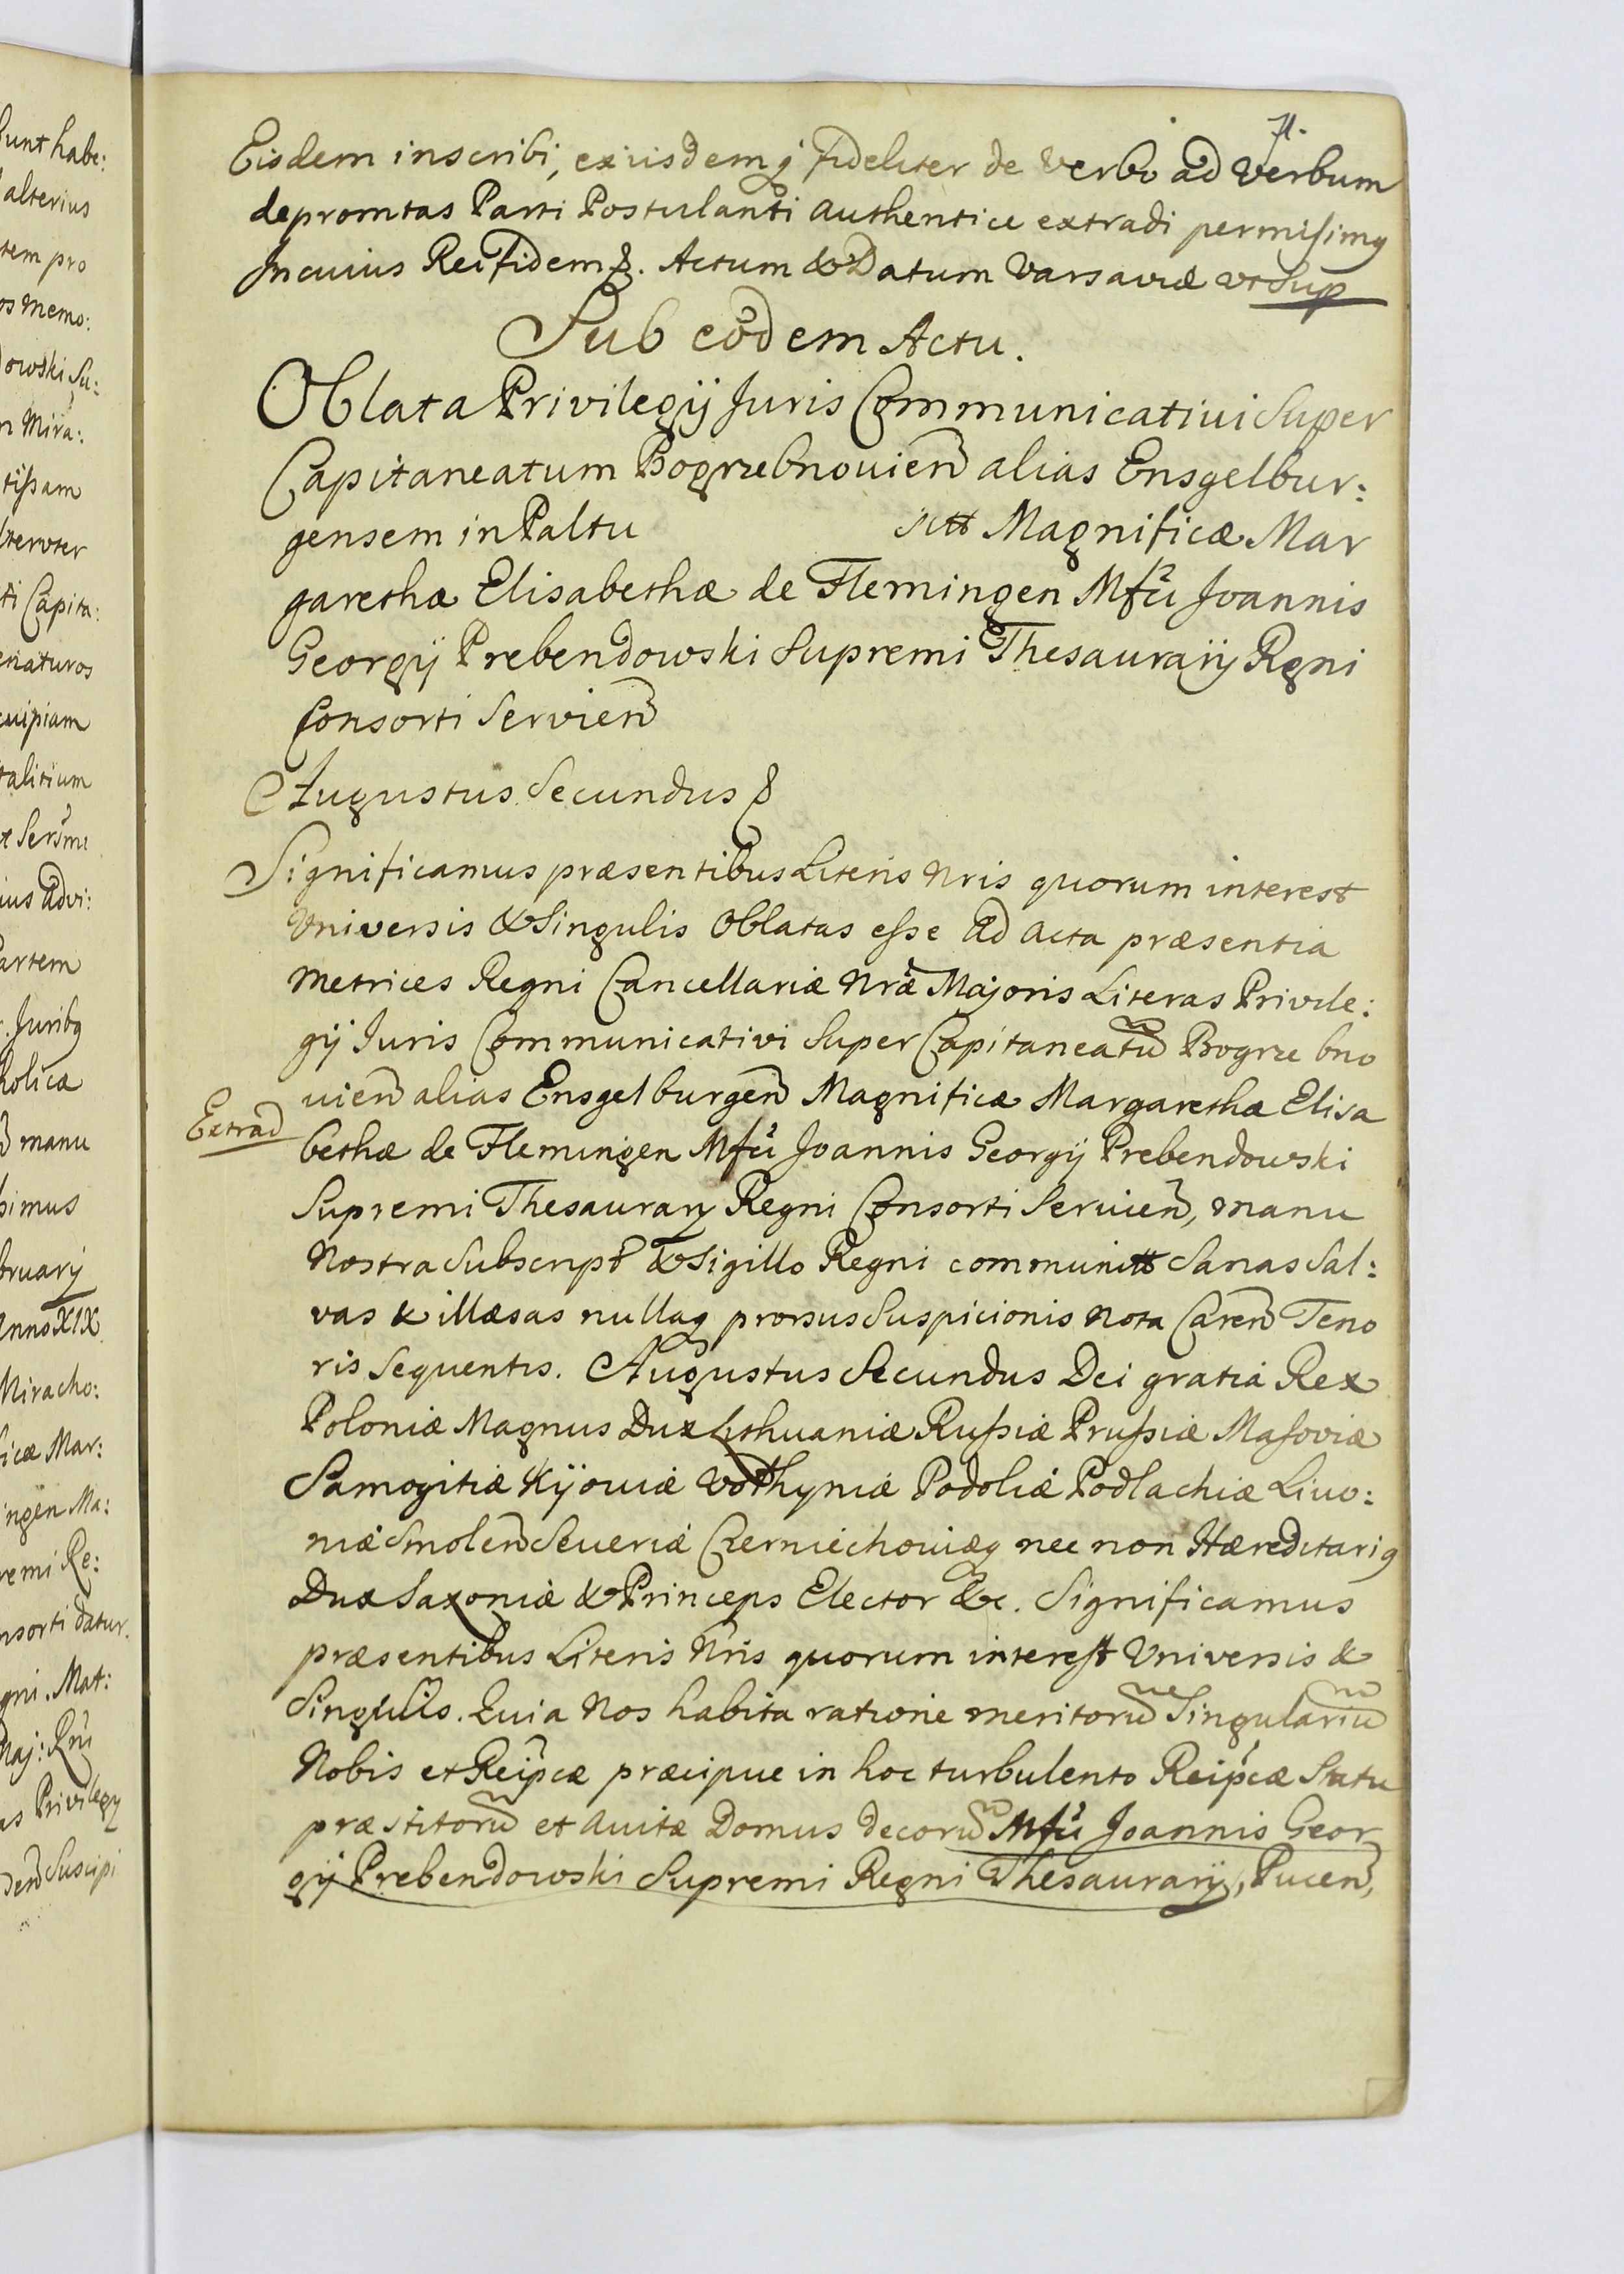 71.
Eisdem inscribi, exiisdemq̃ fideliter de Verbo ad Verbum
depromtas Parti Postulanti authentice extradi permisimq
In cuius Rei fidem &. Actum & Datum Varsaviæ vt Sup
Sub eodem Actu.
Oblata Privilegij Juris Communicativi Super
Capitaneatum Pogrzebnovien̄ alias Ensgelbur:
gensem in Paltu Magnificæ Mar
garethæ Elisabethæ de Flemingen Mfci Joannis
Georgij Prebendowski Supremi Thesaurarij Rgni
Consorti Servien̄
Augustus Secundus &
Significamus præsentibus Literis Nris quorum interest
Universis & Singulis Oblatas esse ad acta præsentia
Metrices Regni Cancellariæ Nræ Majoris Literas Privile:
gij Juris Communicativi Super Capitaneatū Pogrze bno
vien̄ alias Ensgelburgen̄ Magnificæ Margarethæ Elisa
Extrad
bethæ de Flemingen Mfci Joannis Georgij Prebendowski
Supremi Thesaurarij Regni Consorti Servien̄, manu
Nostra Subscript & Sigillo Regni communitt Sanas Sal:
vas & illæsas nullaq prorsus Suspicionis Nota Caren̄ Teno
ris Sequentis. Augustus Secundus Dei gratia Rex
Poloniæ Magnus Dux Lithuaniæ Russiæ Prussiæ Masoviæ
Samogitiæ Kijoviæ Volhyniæ Podoliæ Podlachiæ Livo:
niæ Smolen̄ Severiæ Czerniechoviæq nec non Hæreditariq
Dux Saxoniæ & Princeps Elector &c. Significamus
præsentibus Literis Nris quorum interest Universis &
Singulis. Quia Nos habita ratione meritorū Singulariū
Nobis et Reipcæ præcipue in hoc turbulento Reipcæ Statu
præstitorū et avitæ Domus decorū Mfci Joannis Geor
gij Prebendowski Supremi Regni Thesaurarij, Pucen̄,